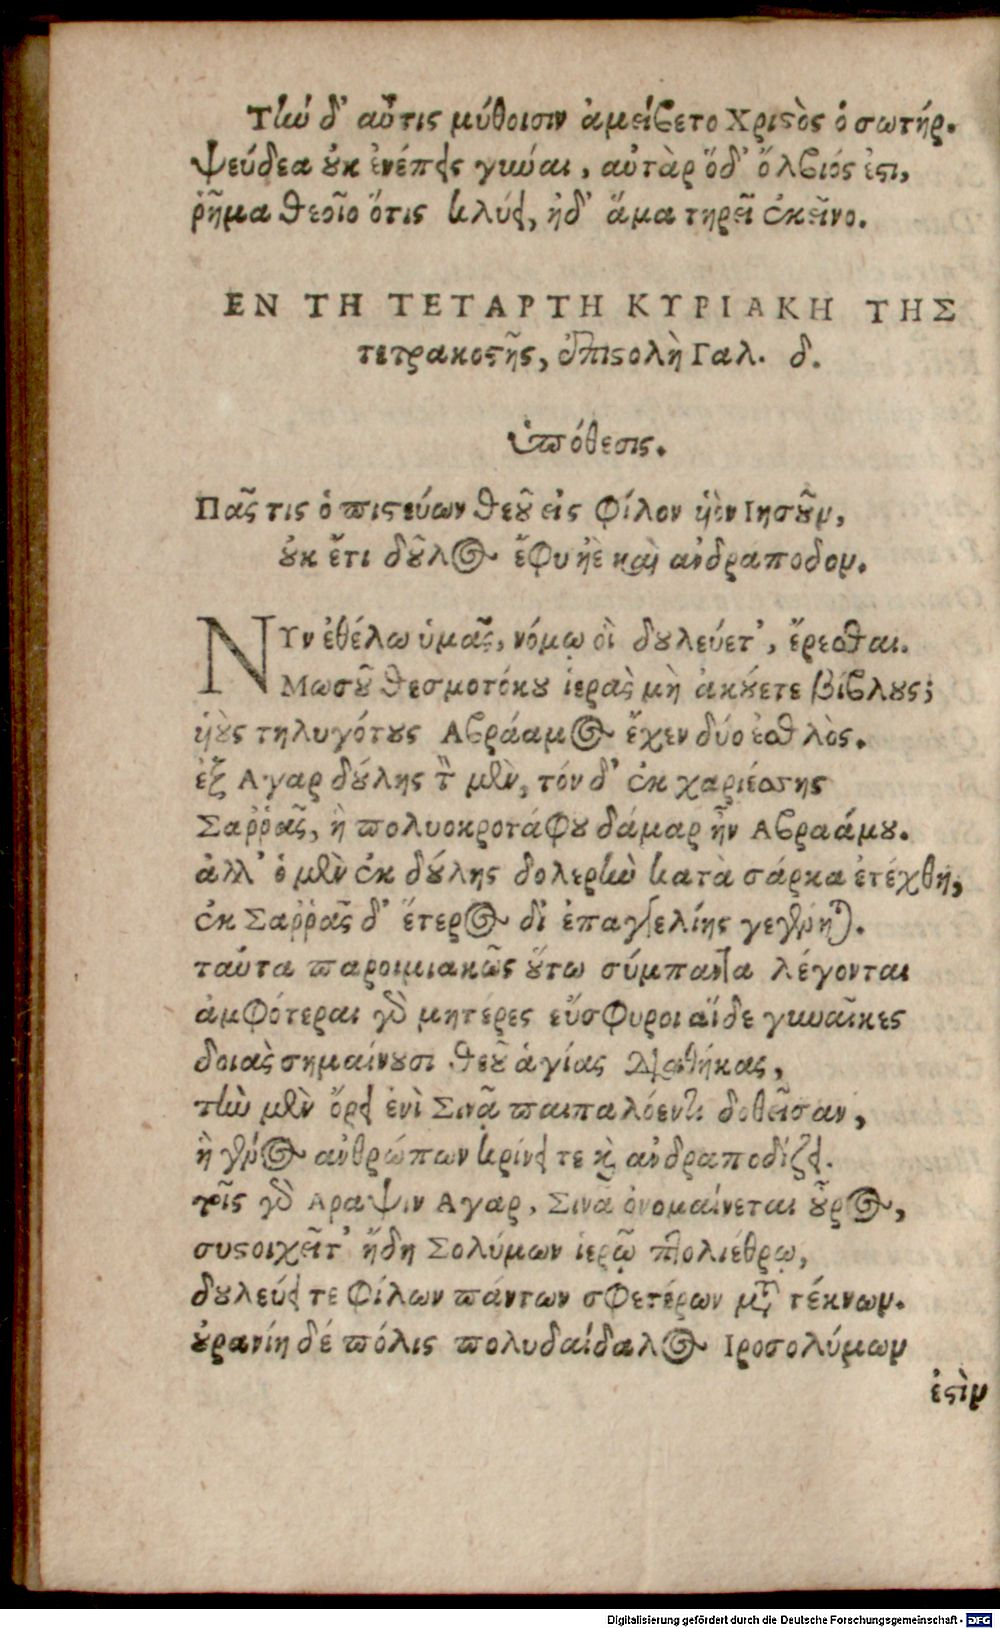 Τὼ δ' αὖτις μύθοισιν ἀμείβετο Χριστὸς ὁ σωτήρ.
ψεύδεα οὐκ ἐνέπεις γύναι, αὐτὰρ ὅδ' ὄλβιός ἐστι,
ῥῆμα θεοῖο ὅτις κλύει, ἠδ' ἅμα τηρεῖ ἐκεῖνο.
ΕΝ ΤΗ ΤΕΤΑΡΤΗ ΚΥΡΙΑΚΗ ΤΗΣ
τετρακοστῆς, ἐπιστολὴ Γαλ. δ.
ὑπόθεσις.
Πᾶς τις ὁ πιστεύων θεοῦ εἰς φίλον ὑὸν Ιησοῦν,
οὐκ ἔτι δοῦλος ἔφυ ἠὲ καὶ ἀνδραποδον.
ΝΥν ἐθέλω ὑμᾶς, νόμῳ οἳ δουλεύετ', ἔρεσθαι.
Μωσοῦ θεσμοτόκου ἱερὰς μὴ ἀκούετε βίβλους;
ὑοὺς τηλυγότους Αβράαμος ἔχεν δύο ἐσθλὸς.
ἐξ Αγαρ δούλης τὸν μὲν, τόν δ' ἐκ χαριέσσης
Σαῤῥᾶς, ἣ πολυοκροτάφου δάμαρ ἦν Αβραάμου.
ἀλλ' ὁ μὲν ἐκ δούλης δολερὴν κατὰ σάρκα ἐτέχθη,
ἐκ Σαῤῥᾶς δ' ἕτερος δι' ἐπαγγελίης γεγένηται.
ταύτα παροιμιακῶς οὕτω σύμπαντα λέγονται
ἀμφότεραι γὰρ μητέρες εὔσφυροι αἵδε γυναῖκες
δοιὰς σημαίνουσι θεοῦ ἁγίας Διαθήκας,
τὴν μὲν ὄρει ἐνὶ Σινᾶ παιπαλόεντι δοθεῖσαν,
ἣ γένος ἀνθρώπων κρίνει τε καὶ ἀνδραποδίζει.
τοῖς γὰρ Αραψιν Αγαρ, Σινᾶ ὀνομαίνεται οὖρος,
συστοιχεῖτ' ἤδη Σολύμων ἱερῷ πτολιέθρῳ,
δουλεύει τε φίλων πάντων σφετέρων μετὰ τέκνων.
οὐρανίη δέ πόλις πολυδαίδαλος Ιροσολύμων
ἐστὶν
Digitalisierung gefördert durch die Deutsche Forschungsgemeinschaft - DFG